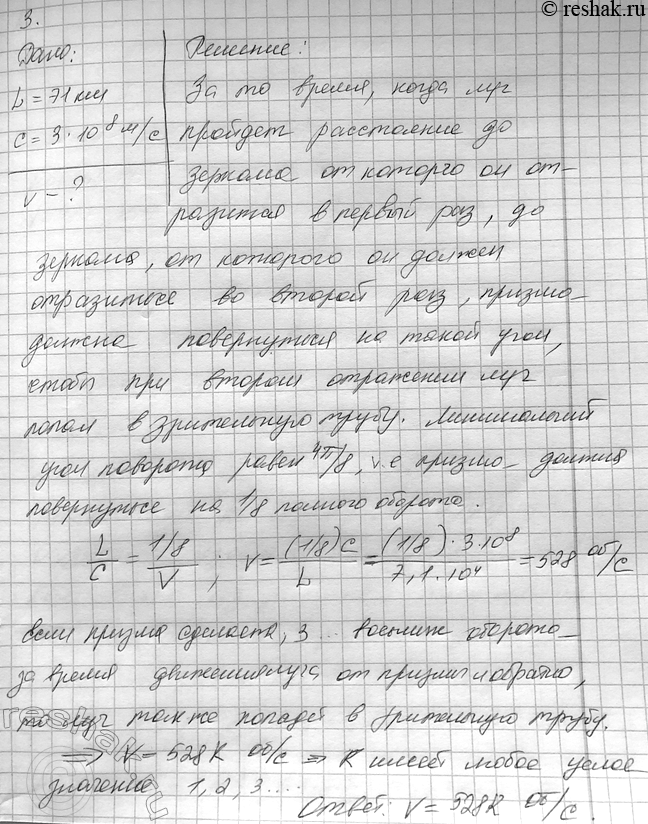 © reshak.ru
3.
Дано: Решение:
L = 71 км За то время, когда луч
c = 3·10^8 м/с пройдет расстояние до
v - ? зеркала от которго он от-
разится в первый раз, до
зеркала, от которого он должен
отразиться во второй раз, призма
должна повернуться на такой угол,
чтобы при втором отражении луч
попал в зрительную трубу. Минимальный
угол поворота равен 4π/8, т.е призма должна
повернуться на 1/8 полного оборота.
L/c = (1/8)/v ; v = (1/8)c/L = (1/8)·3·10^8/7,1·10^4 = 528 об/с
если призма сделает, 3 ... восьмих оборота
за время движения луча от призмы и обратно,
то луч также попадет в зрительную трубу.
=> v = 528k об/с => k имеет любое целое
значение 1, 2, 3 ....
Ответ: v = 528k об/с.
reshak.ru